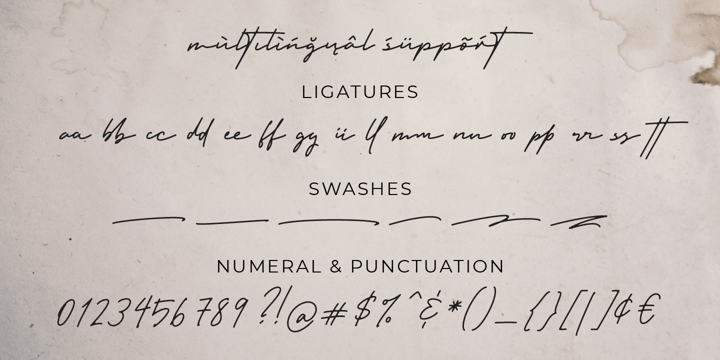 mùltılìńğųâl śüppõŕt
LIGATURES
aa bb cc dd ee ff gg ii ll mm nn oo pp rr ss tt
SWASHES
NUMERAL & PUNCTUATION
0123456789 ?!@#$%^&*()_{}[|]¢€